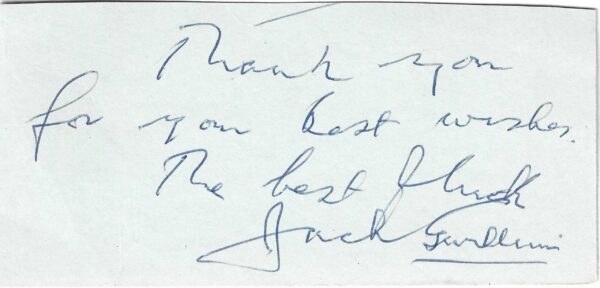 Thank you
for your best wishes.
The best of luck
Jack